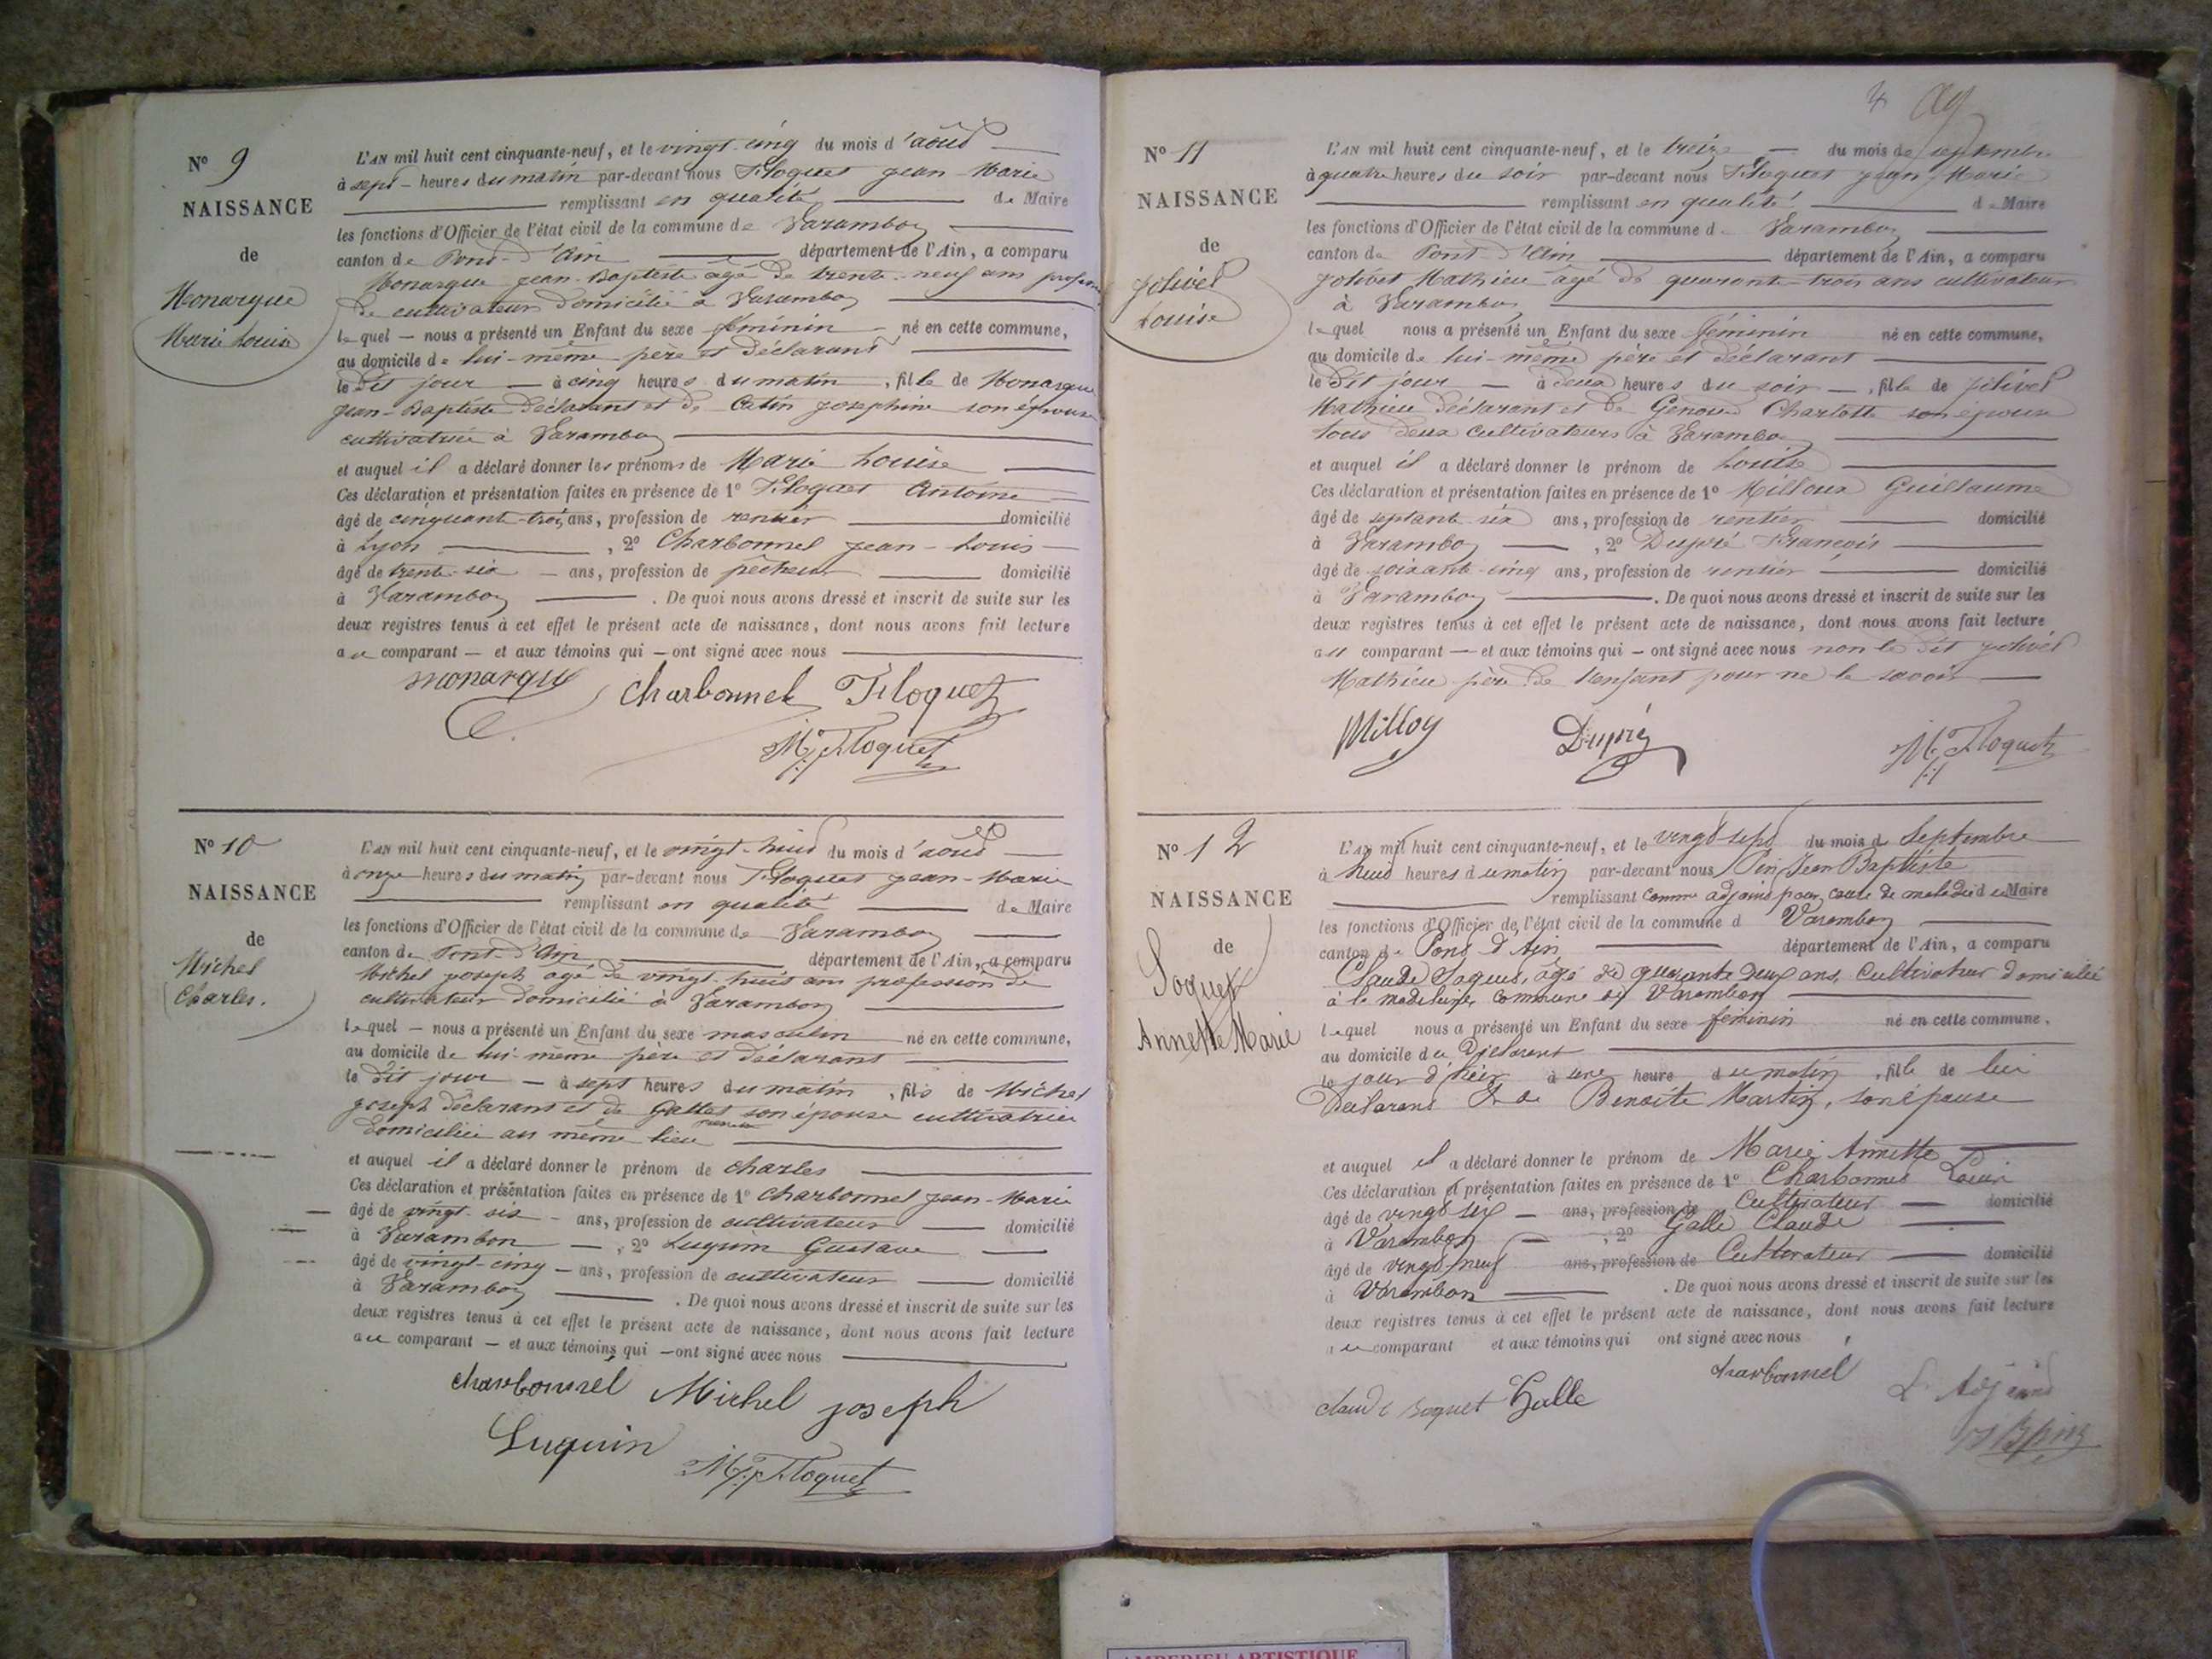 No 9
NAISSANCE
de
Monarque
Marie Louise
L'AN mil huit cent cinquante-neuf, et le vingt-cinq du mois d'août
à sept heures du matin par-devant nous Floquet Jean-Marie
remplissant en qualité de Maire
les fonctions d'Officier de l'état civil de la commune de Varambon
canton de Pont-d'Ain département de l'Ain, a comparu
Monarque Jean-Baptiste âgé de trente-neuf ans profession
de cultivateur domicilié à Varambon
lequel nous a présenté un Enfant du sexe féminin né en cette commune,
au domicile de lui-même père et déclarant
le dit jour à cinq heures du matin, fille de Monarque
Jean-Baptiste déclarant et de Catin Josephine son épouse
cultivatrice à Varambon
et auquel il a déclaré donner les prénoms de Marie Louise
Ces déclaration et présentation faites en présence de 1o Floquet Antoine
âgé de cinquante-trois ans, profession de rentier domicilié
à Lyon, 2o Charbonnel Jean-Louis
âgé de trente-six ans, profession de pêcheur domicilié
à Varambon. De quoi nous avons dressé et inscrit de suite sur les
deux registres tenus à cet effet le présent acte de naissance, dont nous avons fait lecture
au comparant et aux témoins qui ont signé avec nous
monarque Charbonnel Floquet
Floquet
No 10
NAISSANCE
de
Michel
Charles.
L'AN mil huit cent cinquante-neuf, et le vingt-huit du mois d'août
à onze heures du matin par-devant nous Floquet Jean-Marie
remplissant en qualité de Maire
les fonctions d'Officier de l'état civil de la commune de Varambon
canton de Pont-d'Ain département de l'Ain, a comparu
Michel Joseph âgé de vingt-huit ans profession de
cultivateur domicilié à Varambon
lequel nous a présenté un Enfant du sexe masculin né en cette commune,
au domicile de lui-même père et déclarant
le dit jour à sept heures du matin, fils de Michel
Joseph déclarant et de Gallet son épouse cultivatrice
domiciliée au même lieu
et auquel il a déclaré donner le prénom de Charles
Ces déclaration et présentation faites en présence de 1o Charbonnel Jean-Marie
âgé de vingt-six ans, profession de cultivateur domicilié
à Varambon, 2o Luquin Gustave
âgé de vingt-cinq ans, profession de cultivateur domicilié
à Varambon. De quoi nous avons dressé et inscrit de suite sur les
deux registres tenus à cet effet le présent acte de naissance, dont nous avons fait lecture
au comparant et aux témoins qui ont signé avec nous
charbonnel Michel joseph
Luquin Floquet
4
No 11
NAISSANCE
de
Jolivet
Louise
L'AN mil huit cent cinquante-neuf, et le treize du mois de septembre
à quatre heures du soir par-devant nous Floquet Jean Marie
remplissant en qualité de Maire
les fonctions d'Officier de l'état civil de la commune d Varambon
canton de Pont-d'Ain département de l'Ain, a comparu
Jolivet Mathieu âgé de quarante-trois ans cultivateur
à Varambon
lequel nous a présenté un Enfant du sexe féminin né en cette commune,
au domicile de lui-même père et déclarant
le dit jour à deux heures du soir, fille de Jolivet
Mathieu déclarant et de Genoud Charlotte son épouse
tous deux cultivateurs à Varambon
et auquel il a déclaré donner le prénom de Louise
Ces déclaration et présentation faites en présence de 1o Guillaume
âgé de septante-six ans, profession de rentier domicilié
à Varambon, 2o Dupré François
âgé de soixante-cinq ans, profession de rentier domicilié
à Varambon. De quoi nous avons dressé et inscrit de suite sur les
deux registres tenus à cet effet le présent acte de naissance, dont nous avons fait lecture
au comparant et aux témoins qui ont signé avec nous non le dit Jolivet
Mathieu père de l'enfant pour ne le savoir
Milloy Dupré Floquet
No 12
NAISSANCE
de
Soquet
Annette Marie
L'AN mil huit cent cinquante-neuf, et le vingt-sept du mois d Septembre
à huit heures du matin par-devant nous Pin Jean Baptiste
remplissant comme adjoint pour cause de maladie du Maire
les fonctions d'Officier de l'état civil de la commune d Varambon
canton de Pont d'Ain département de l'Ain, a comparu
Claude Soquet, âgé de quarante deux ans, Cultivateur domicilié
à la Madeleine, commune de Varambon
lequel nous a présenté un Enfant du sexe féminin né en cette commune,
au domicile du Déclarant
le jour d'hier à une heure du matin, fille de lui
Déclarant & de Benoite Martin, son épouse
et auquel il a déclaré donner le prénom de Marie Annette
Ces déclaration et présentation faites en présence de 1o Charbonnel Louis
âgé de vingt six ans, profession de Cultivateur domicilié
à Varambon, 2o Galle Claude
âgé de vingt neuf ans, profession de Cultivateur domicilié
à Varambon. De quoi nous avons dressé et inscrit de suite sur les
deux registres tenus à cet effet le présent acte de naissance, dont nous avons fait lecture
au comparant et aux témoins qui ont signé avec nous
charbonnel
claude soquet Galle L'Adjoint
JB pin
AMBERIEU ARTISTIQUE